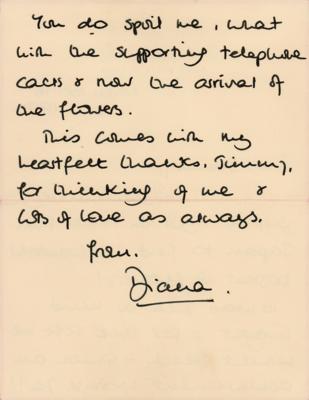 You do spoil me, what
with the supporting telephone
calls & now the arrival of
the flowers.
This comes with my
heartfelt thanks, Jimmy,
for thinking of me &
lots of love as always.
from.
Diana.